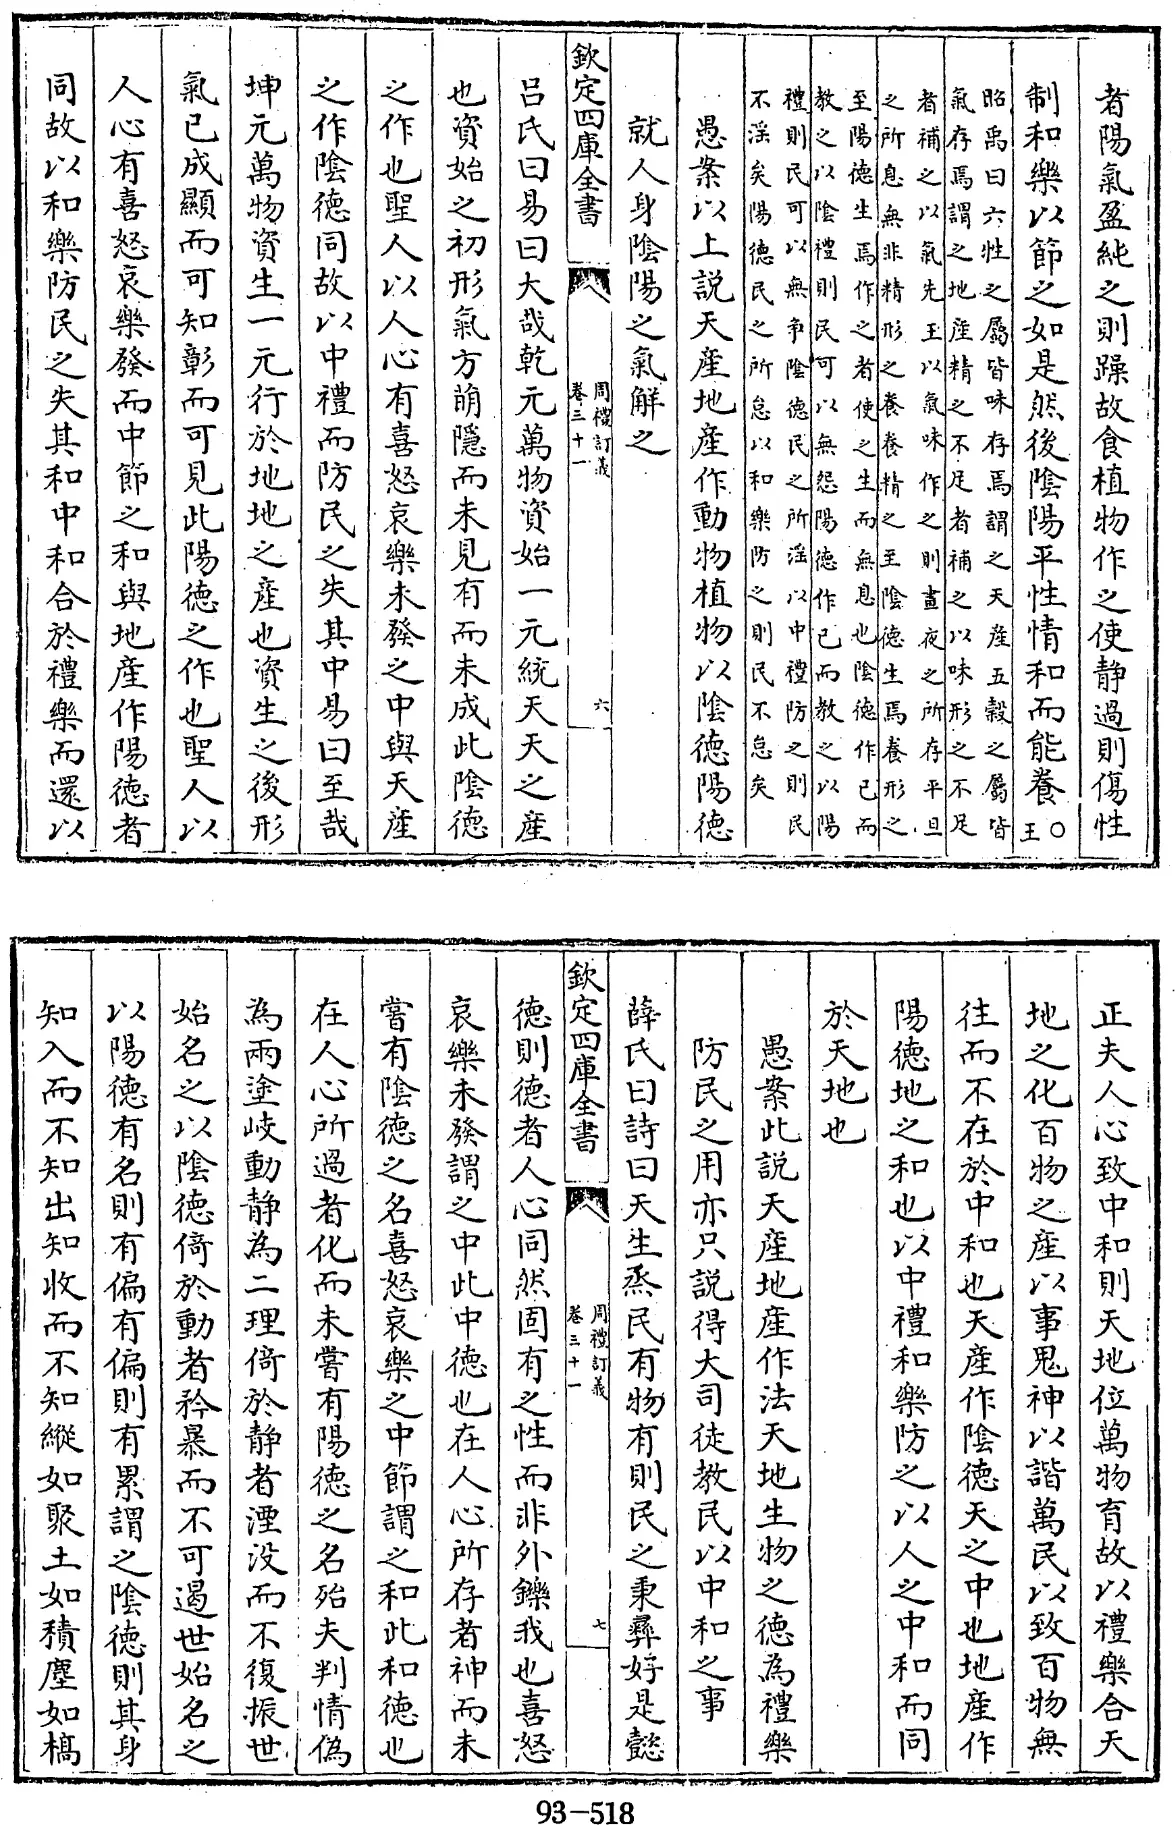 者陽氣盈純之則躁故食植物作之使静過則傷性
制和樂以節之如是然後陰陽平性情和而能養○王
昭禹曰六性之屬皆味存焉謂之天産五穀之屬皆
氣存焉謂之地産精之不足者補之以味形之不足
者補之以氣先王以氣味作之則晝夜之所存平旦
之所息無非精形之養養精之至陰德生焉養形之
至陽德生焉作之者使之生而無息也陰德作已而
教之以陰禮則民可以無怨陽德作已而教之以陽
禮則民可以無争陰德民之所滛以中禮防之則民
不滛矣陽德民之所怠以和樂防之則民不怠矣
愚案以上説天産地産作動物植物以陰德陽德
就人身陰陽之氣解之
欽定四庫全書
周禮訂義
卷三十一
六
吕氏曰易曰大哉乾元萬物資始一元統天天之産
也資始之初形氣方萌隱而未見有而未成此陰德
之作也聖人以人心有喜怒哀樂未發之中與天産
之作陰德同故以中禮而防民之失其中易曰至哉
坤元萬物資生一元行於地地之産也資生之後形
氣已成顯而可知彰而可見此陽德之作也聖人以
人心有喜怒哀樂發而中節之和與地産作陽德者
同故以和樂防民之失其和中和合於禮樂而還以
正夫人心致中和則天地位萬物育故以禮樂合天
地之化百物之産以事鬼神以諧萬民以致百物無
往而不在於中和也天産作陰德天之中也地産作
陽德地之和也以中禮和樂防之以人之中和而同
於天地也
愚案此説天産地産作法天地生物之德為禮樂
防民之用亦只説得大司徒教民以中和之事
薛氏曰詩曰天生烝民有物有則民之秉彞好是懿
欽定四庫全書
周禮訂義
卷三十一
七
德則德者人心同然固有之性而非外鑠我也喜怒
哀樂未發謂之中此中德也在人心所存者神而未
嘗有陰德之名喜怒哀樂之中節謂之和此和德也
在人心所過者化而未嘗有陽德之名殆夫判情偽
為兩塗岐動静為二理倚於静者湮没而不復振世
始名之以陰德倚於動者矜暴而不可遏世始名之
以陽德有名則有偏有偏則有累謂之陰德則其身
知入而不知出知收而不知縱如聚土如積塵如槁
93-518